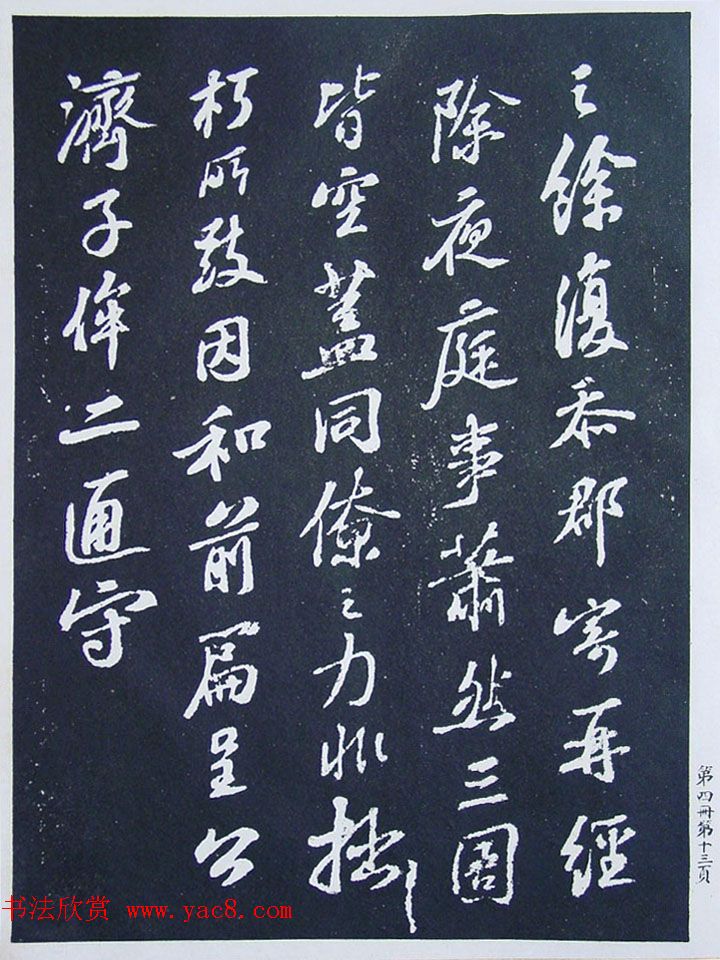 之餘復忝郡寄再經
除夜庭事蕭然三圄
皆空蓋同僚之力非拙
朽所致因和前篇呈公
濟子侔二通守
第四冊第十三頁
书法欣赏 www.yac8.com